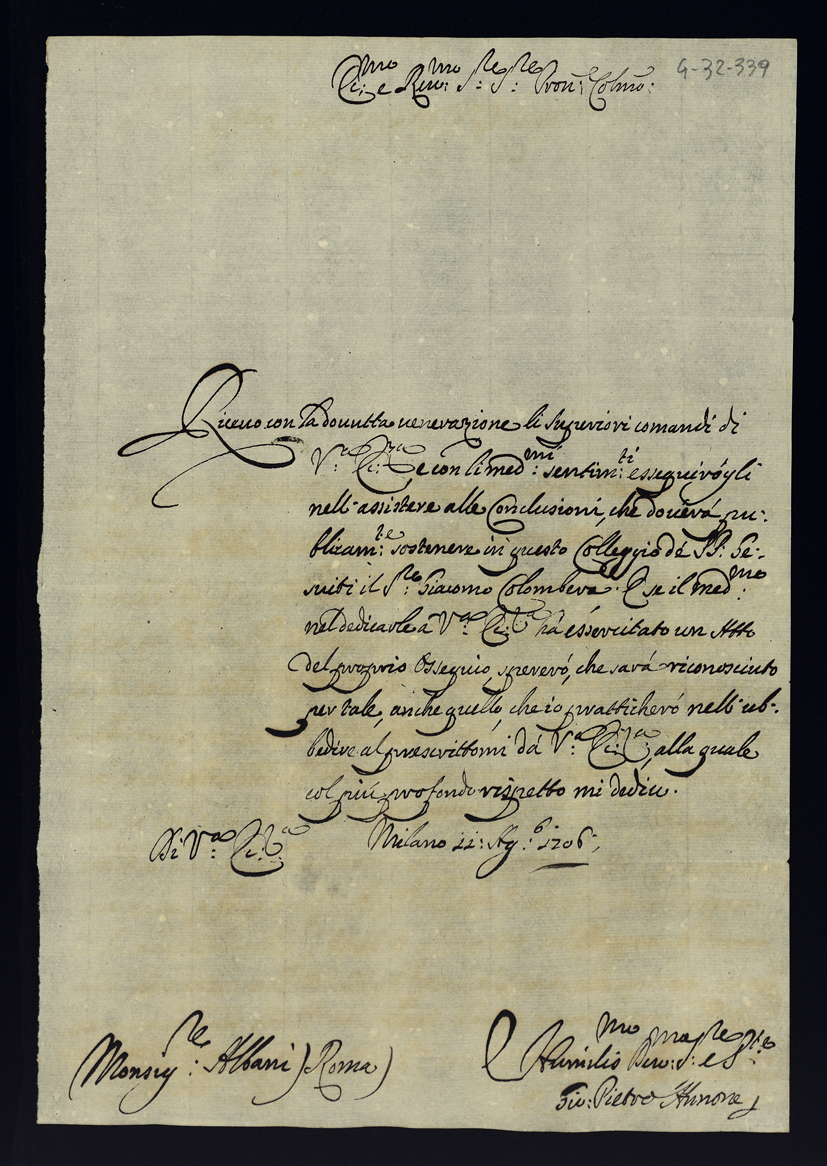 Ecc:mo e Reu:mo S:re S:re Pron:e Colmo:
G-32-339
Riceuo con la douutta uenerazione li superiori comandi di
V:a Ecc:za e con li med:mi sentim:ti esseguirógli
nell'assistere alle Conclusioni, che douerá pu:
blicam:te sostenere in questo Colleggio dé PP: Ge:
suiti il S:re Giacomo Colombera. E se il med:mo
nel dedicarle á V:a Ecc:a há éssercitato un Atto
del proprio Ossequio, spereró, che sará riconosciuto
per tale, anche quello, che io pratticheró nell'ub:
bedire al prescrittomi dá V:a Ecc:a, alla quale
col piú profondo rispetto mi dedico.
Di V:a Ecc:a Milano 11: Ag:o 1706:
Monsig:re Albani) Roma)
Humilis:mo Deu:mo S:re e
Gio: Pietro Annone